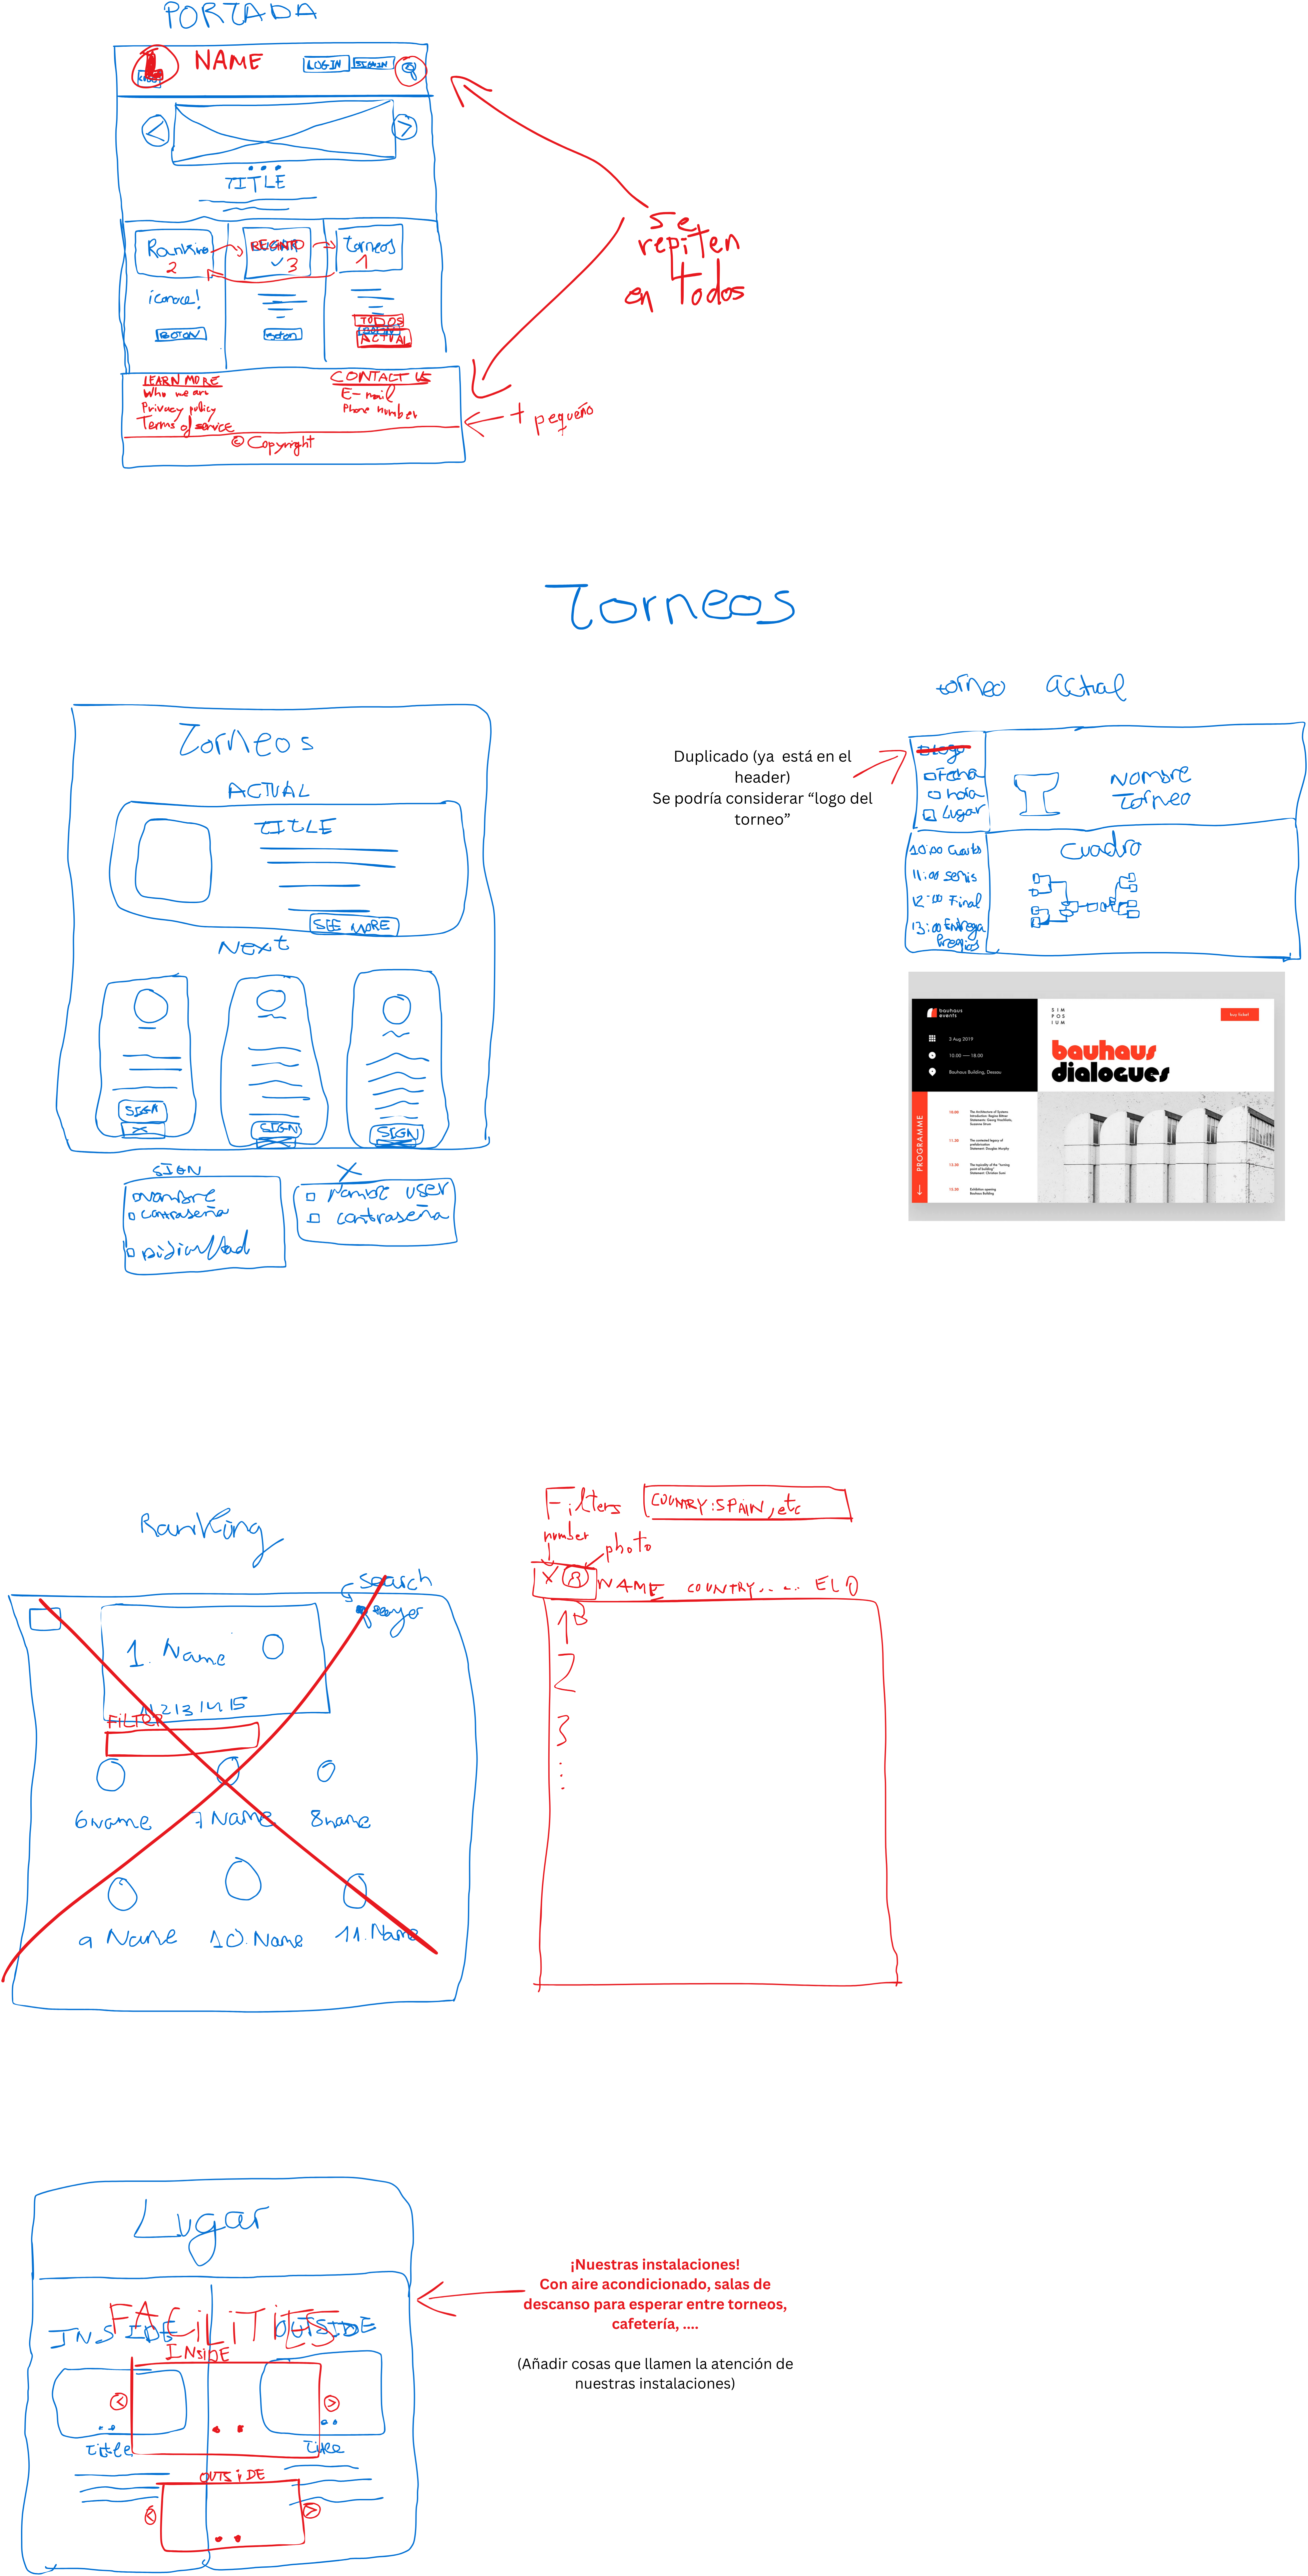 PORTADA
L NAME LOGIN SIGNIN
TITLE
Ranking RECINTO Torneos
2 3 1
¡Conoce!
BOTON Boton TODOS
ACTUAL
LEARN MORE CONTACT US
Who we are E-mail
Privacy policy Phone number
Terms of service
© Copyright
Se
repiten
en todos
+ pequeño
Torneos
Torneos
ACTUAL
TITLE
SEE MORE
NEXT
SIGN SIGN SIGN
X
SIGN
Nombre
contraseña
X
Nombre user
contraseña
Duplicado (ya está en el
header)
Se podría considerar “logo del
torneo”
torneo actual
Logo
Fecha
hora
Lugar
Nombre
Torneo
10:00 Cuarto
11:00 semis
12:00 Final
13:00 Entrega
Premios
Cuadro
bauhaus
events
3 Aug 2019
10.00 — 18.00
Bauhaus Building, Dessau
SIM
POS
IUM
buy ticket
bauhaus
dialogues
PROGRAMME
10.00 The Architecture of Systems
11.30 The contested legacy of
prefabrication
Statement: Douglas Murphy
13.30 The topicality of the “turning
point of building”
15.30 Exhibition opening
Bauhaus Building
Ranking
Search
1. Name
FILTER
6 name 7 Name 8 name
9 Name 10. Name 11. Name
Filters COUNTRY: SPAIN, etc
number photo
X NAME COUNTRY..... ELO
1
2
3
Lugar
FACILITIES
INSIDE OUTSIDE
INSIDE
Title Title
OUTSIDE
¡Nuestras instalaciones!
Con aire acondicionado, salas de
descanso para esperar entre torneos,
cafetería, ....
(Añadir cosas que llamen la atención de
nuestras instalaciones)